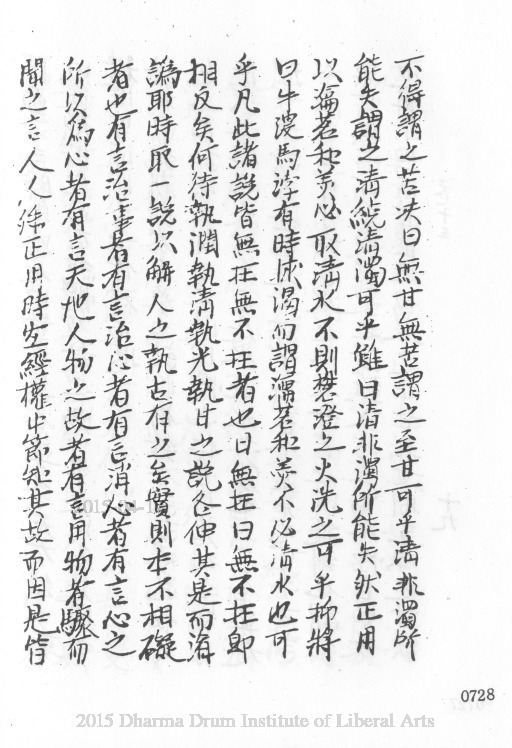 不得謂之苦决曰無甘無苦謂之至甘可乎清非濁所
能失謂之清絶清濁可乎雖曰清非濁所能失然正用
以瀹茗和羮必取清水不則礬澄之火洗之可乎抑將
曰牛溲馬浡有時療渴而謂瀹茗和羮不必清水也可
乎凡此諸說皆無在無不在者也曰無在曰無不在卽
相反矣何待執潤執清執光執甘之說各伸其是而淆
譌耶時取一說以解人之執古有之矣實則本不相礙
者也有言治事者有言治心者有言清心者有言心之
所以爲心者有言天地人物之故者有言用物者驟而
聞之言人人殊正用時宜經權中節知其故而因是皆
0728
2015 Dharma Drum Institute of Liberal Arts